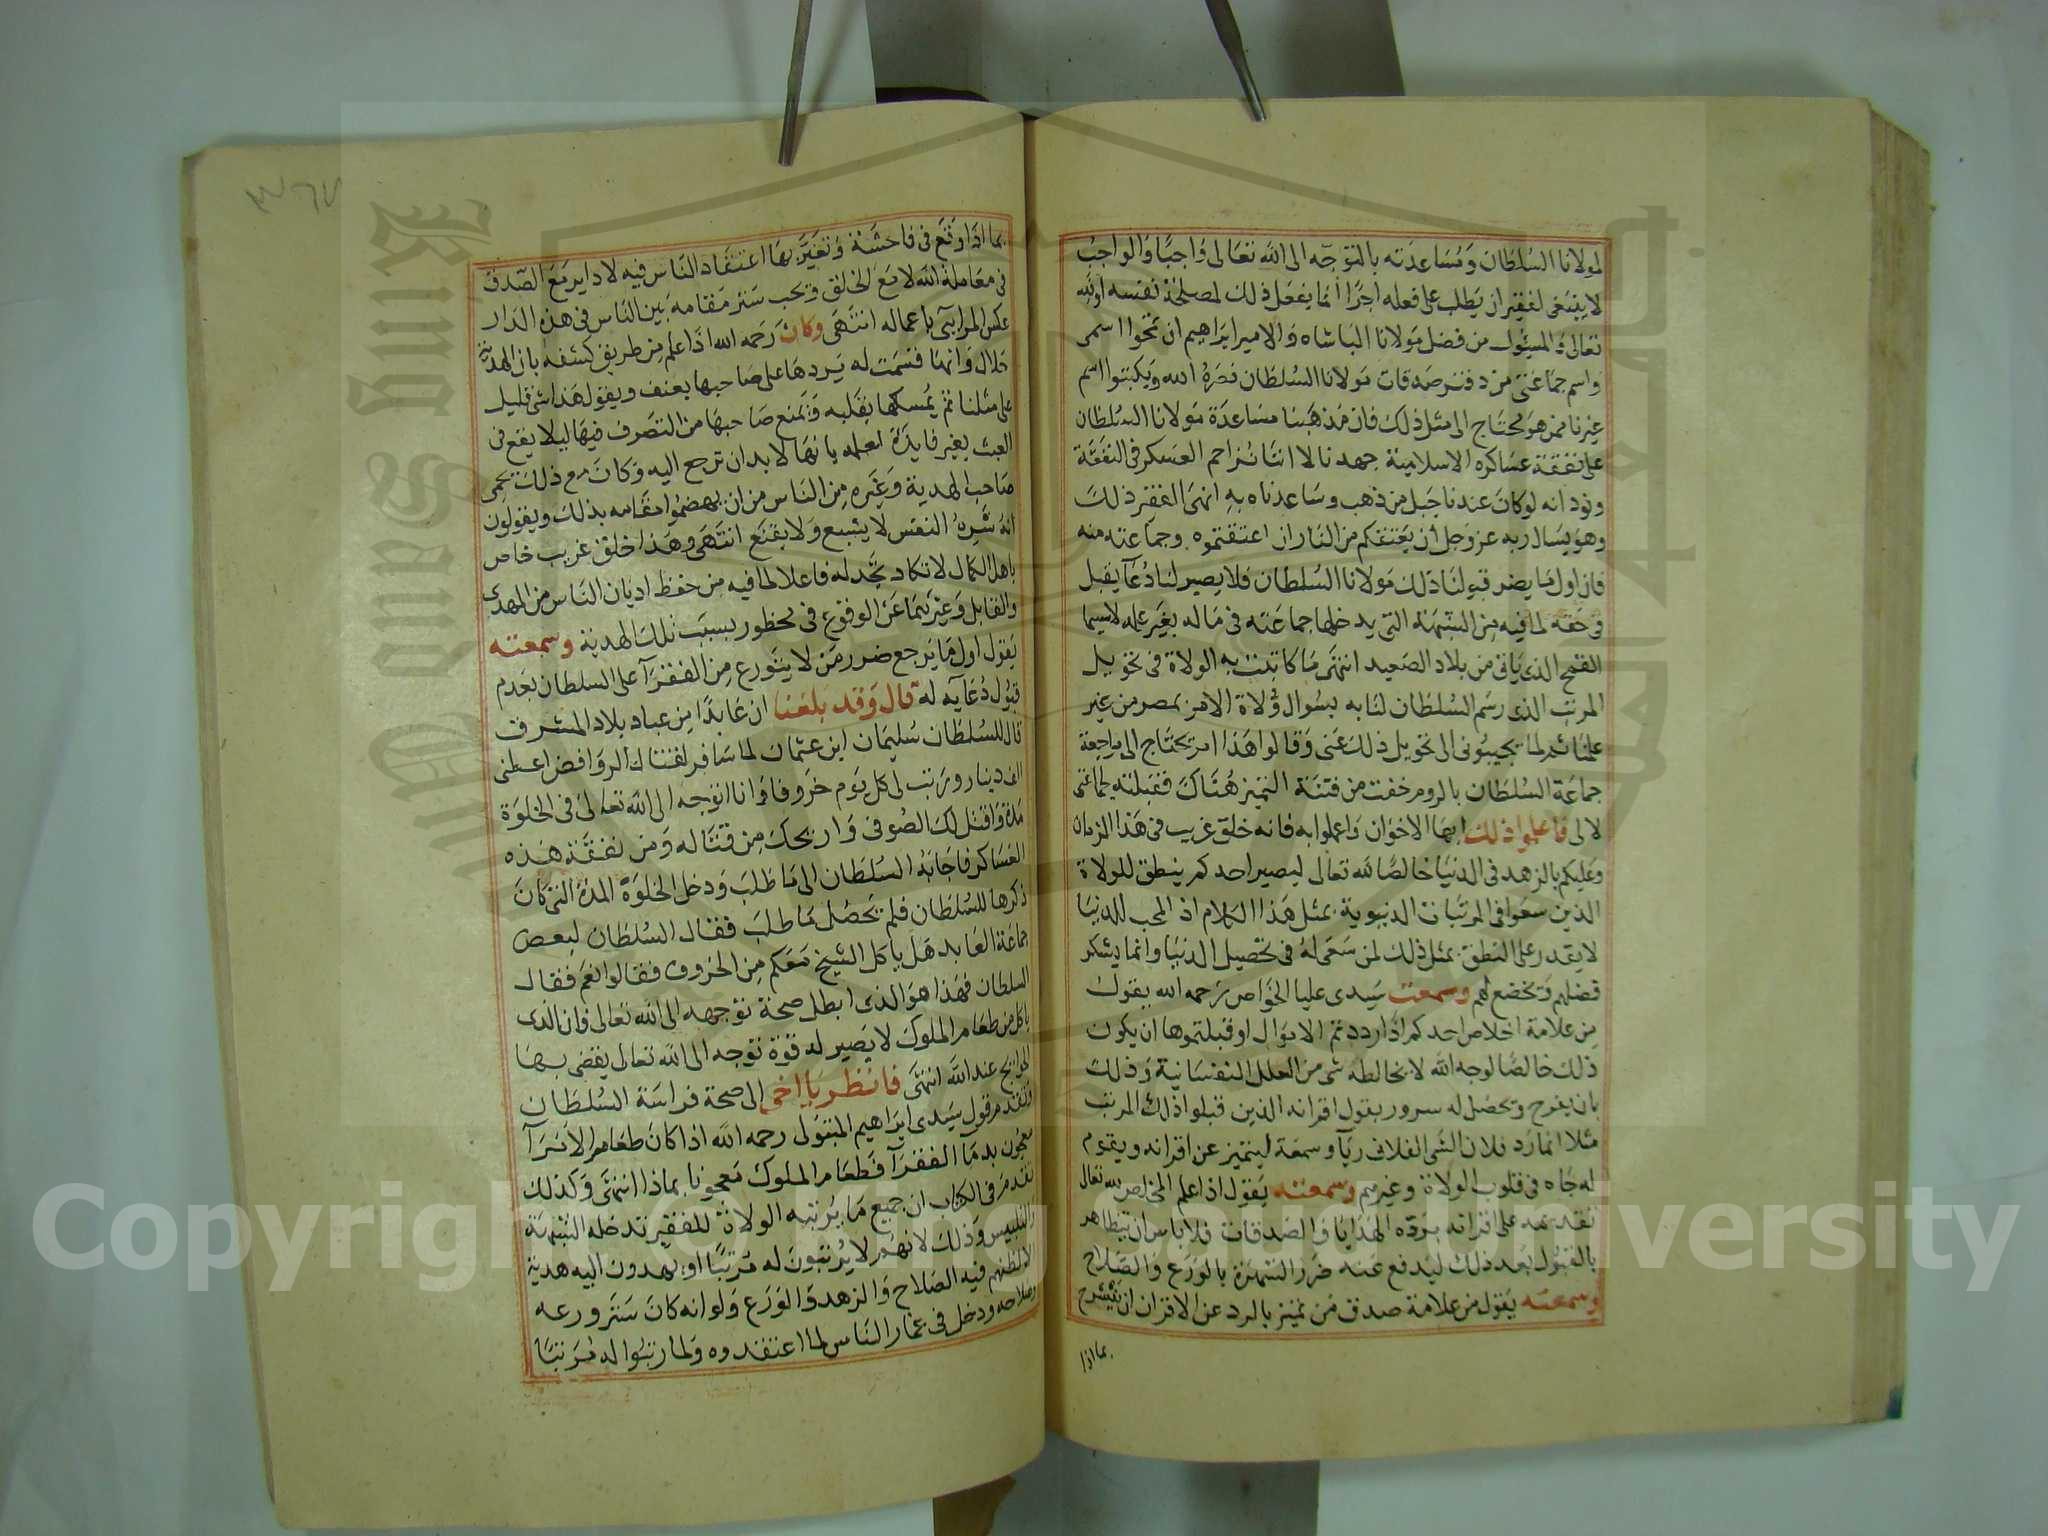 لمولانا السلطان ومساعدته بالتوجه الى الله تعالى واجبا والواجب
لا ينبغى لفقير ان يطلب على فعله اجرا انما يفعل ذلك لمصلحة نفسه اولله
تعالى فالمسئول من فضل مولانا الباشاه والامير ابراهيم ان تمحوا اسمى
واسم جماعتى من دفتر صدقات مولانا السلطان نصره الله ويكتبوا اسم
غيرنا ممن هو محتاج الى مثل ذلك فان مذهبنا مساعدة مولانا السلطان
على نفقة عساكره الاسلامية جهدنا لا اننا نزاحم العسكر فى النفقة
ونود انه لو كان عندنا جبل من ذهب وساعدناه به انهى الفقير ذلك
وهو يسال ربه عز وجل ان يعتقكم من النار ان اعتقتموه وجماعته منه
فان اول ما يضر قبولنا ذلك مولانا السلطان فلا يصير لنا دعآ يقبل
فى حقه لما فيه من الشبهة التى يدخلها جماعته فى ماله بغير علمه لاسيما
القمح الذى ياتى من بلاد الصعيد انتهى ما كاتبت به الولاة فى تحويل
المرتب الذى رسم السلطان لنا به بسوال ولاة الامر بمصر من غير
علمنا ثم لما يجيبونى الى تحويل ذلك عنى وقالوا هذا امر يحتاج الى مراجعة
جماعة السلطان بالروم خفت من فتنة التميز هناك فقبلته لجماعتى
لا لى فاعلموا ذلك ايها الاخوان واعملوا به فانه خلق غريب فى هذا الزمان
وعليكم بالزهد فى الدنيا خالصا لله تعالى ليصير احدكم ينطق للولاة
الذين سعوا فى المرتبات الدنيوية بمثل هذا الكلام اذ المحب للدنيا
لا يقدر على النطق بمثل ذلك لمن سعى له فى تحصيل الدنيا وانما يشكر
فضلهم ويخضع لهم وسمعت سيدى عليا الخواص رحمه الله يقول
من علامة اخلاص احدكم اذا رددتم الاموال او قبلتموها ان يكون
ذلك خالصا لوجه الله لا يخالطه شى من العلل النفسانية وذلك
بان يفرح ويحصل له سرور بقول اقرانه الذين قبلوا ذلك المرتب
مثلا انما رد فلان الشى الفلانى ريآ وسمعة ليتميز عن اقرانه ويقوم
له جاه فى قلوب الولاة وغيرهم وسمعته يقول اذا علم المخلص لله تعالى
تقديمه على اقرانه برده الهدايا والصدقات فلا باس ان يتظاهر
بالقبول بعد ذلك ليدفع عنه ضرر الشهرة بالورع والصلاح
وسمعته يقول من علامة صدق من تميز بالرد عن الاقران ان ينشرح
بما اذا
بما اذا وقع فى فاحشة وتغير بها اعتقاد الناس فيه لا داير مع الصدق
فى معاملة الله لا مع الخلق ويحب ستر مقامه بين الناس فى هذه الدار
عكس المرايى باعماله انتهى وكان رحمه الله اذا علم من طريق كشفه بان الهدية
حلال وانها قسمت له يردها على صاحبها بعنف ويقول هذا شى قليل
على مثلنا ثم يمسكها بقلبه ويمنع صاحبها من التصرف فيها ليلا يقع فى
العبث بغير فايدة لعلمه بانها لا بد ان ترجع اليه وكان مع ذلك يحمى
صاحب الهدية وغيره من الناس من ان يهضموا مقامه بذلك ويقولون
انه شره النفس لا يشبع ولا يقنع انتهى وهذا خلق غريب خاص
باهل الكمال لا تكاد تجد له فاعلا لما فيه من حفظ اديان الناس من المهدى
والقابل وغيرهما عن الوقوع فى محظور بسبب تلك الهدية وسمعته
يقول اول ما يرجع ضرر من لا يتورع من الفقرآ على السلطان بعدم
قبول دعآيه له قال وقد بلغنا ان عابدا من عباد بلاد المشرق
قال للسلطان سليمان ابن عثمان لما سافر لقتال الروافض اعطنى
الف دينار ورتب لى كل يوم خروفا وانا اتوجه الى الله تعالى فى الخلوة
مدة واقتل لك الصوفى واريحك من قتاله ومن نفقة هذه
العساكر فاجابه السلطان الى ما طلب ودخل الخلوة المدة التى كان
ذكرها للسلطان فلم يحصل ما طلب فقال السلطان لبعض
جماعة العابد هل ياكل الشيخ معكم من الخروف فقالوا نعم فقال
السلطان فهذا هو الذى ابطل صحة توجهه الى الله تعالى فان الذى
ياكل من طعام الملوك لا يصير له قوة توجه الى الله تعالى يقضى بها
الحوايج عند الله انتهى فانظر يا اخى الى صحة فراسة السلطان
وتقدم قول سيدى ابراهيم المتبولى رحمه الله اذا كان طعام الامرآ
معجون بدمآ الفقرآ فطعام الملوك معجونا بماذا انتهى وكذلك
تقدم فى الكتاب ان جميع ما يرتبه الولاة للفقير تدخله الشبهة
والتلبيس وذلك لانهم لا يرتبون له مرتبا او يهدون اليه هدية
الا لظنهم فيه الصلاح والزهد والورع ولو انه كان ستر ورعه
وصلاحه ودخل فى غمار الناس لما اعتقدوه ولما رتبوا له مرتبا
Copyright © King Saud University